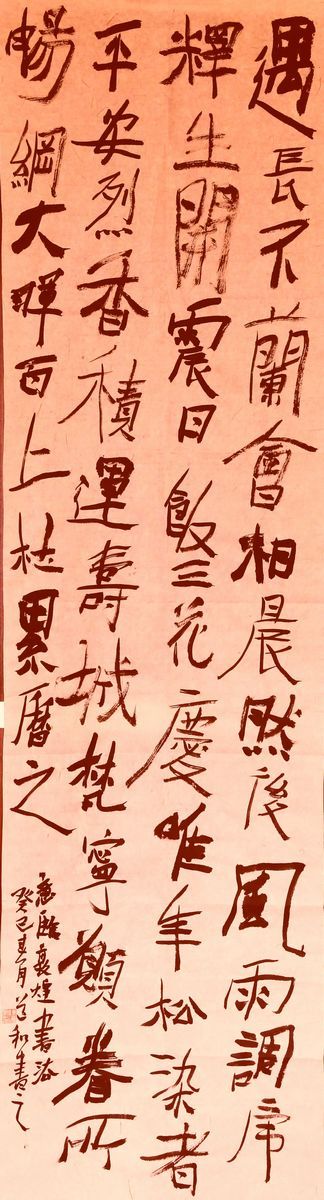 遇長不蘭會相晨然後風雨調席
釋生開震日飯三花慶唯年松染者
平安烈香積運壽城梵寧願眷所
暢綱大暉百上杜累曆之
意臨敦煌書法
癸巳春月 和書之